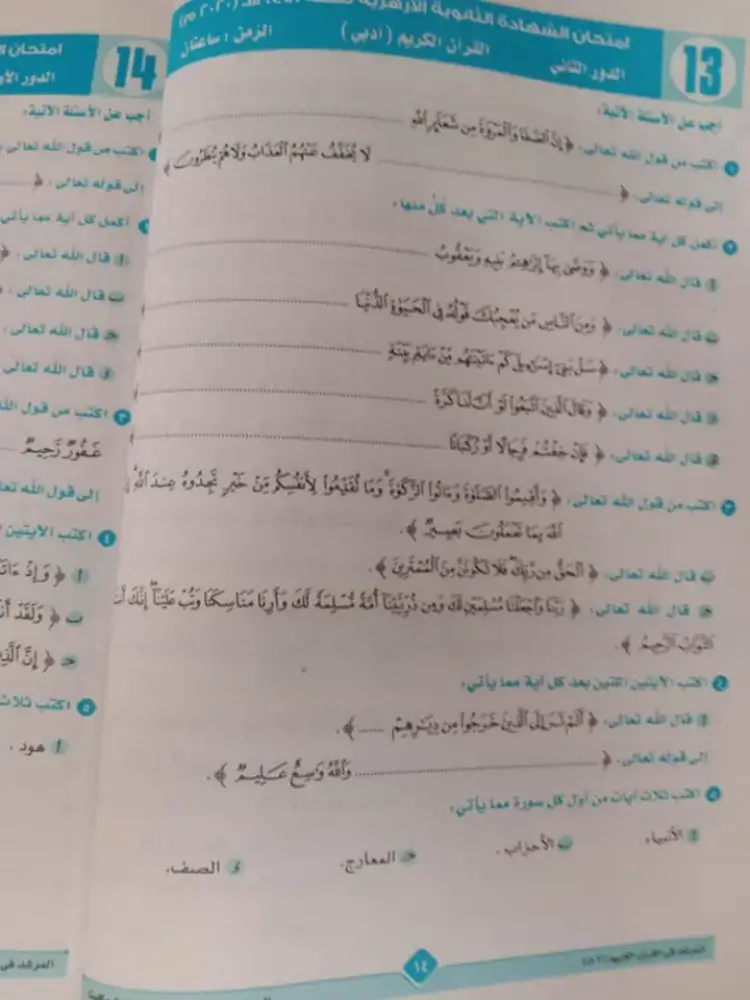 13
امتحان الشهادة الثانوية الأزهرية
الدور الثاني القرآن الكريم (أدبي) الزمن : ساعتان
أجب عن الأسئلة الآتية:
١ اكتب من قول الله تعالى: ﴿ إِنَّ الصَّفَا وَالْمَرْوَةَ مِن شَعَائِرِ اللَّهِ
إلى قوله تعالى: ﴿ لَا يُخَفَّفُ عَنْهُمُ الْعَذَابُ وَلَا هُمْ يُنظَرُونَ ﴾
٢ أكمل كل آية مما يأتي ثم اكتب الآية التي بعد كل منها:
أ قال الله تعالى: ﴿ وَوَصَّىٰ بِهَا إِبْرَاهِيمُ بَنِيهِ وَيَعْقُوبُ
ب قال الله تعالى: ﴿ وَمِنَ النَّاسِ مَن يُعْجِبُكَ قَوْلُهُ فِي الْحَيَوٰةِ الدُّنْيَا
ج قال الله تعالى: ﴿ سَلْ بَنِي إِسْرَائِيلَ كَمْ ءَاتَيْنَاهُم مِّنْ ءَايَةٍ بَيِّنَةٍ
د قال الله تعالى: ﴿ وَقَالَ الَّذِينَ اتَّبَعُوا لَوْ أَنَّ لَنَا كَرَّةً
هـ قال الله تعالى: ﴿ فَإِنْ خِفْتُمْ فَرِجَالًا أَوْ رُكْبَانًا
٣ اكتب من قول الله تعالى: ﴿ وَأَقِيمُوا الصَّلَوٰةَ وَءَاتُوا الزَّكَوٰةَ وَمَا تُقَدِّمُوا لِأَنفُسِكُم مِّنْ خَيْرٍ تَجِدُوهُ عِندَ اللَّهِ
اللَّهَ بِمَا تَعْمَلُونَ بَصِيرٌ ﴾.
ب قال الله تعالى: ﴿ الْحَقُّ مِن رَّبِّكَ فَلَا تَكُونَنَّ مِنَ الْمُمْتَرِينَ ﴾.
ج قال الله تعالى: ﴿ رَبَّنَا وَاجْعَلْنَا مُسْلِمَيْنِ لَكَ وَمِن ذُرِّيَّتِنَا أُمَّةً مُّسْلِمَةً لَّكَ وَأَرِنَا مَنَاسِكَنَا وَتُبْ عَلَيْنَا إِنَّكَ أَنتَ
التَّوَّابُ الرَّحِيمُ ﴾.
٤ اكتب الآيتين اللتين بعد كل آية مما يأتي:
أ قال الله تعالى: ﴿ أَلَمْ تَرَ إِلَى الَّذِينَ خَرَجُوا مِن دِيَارِهِمْ ..... ﴾.
إلى قوله تعالى: ﴿ وَاللَّهُ وَاسِعٌ عَلِيمٌ ﴾.
٥ اكتب ثلاث آيات من أول كل سورة مما يأتي:
أ الأنبياء ب الأحزاب. ج المعارج. د الصف.
١٤
14
امتحان
الدور الأو
أجب عن الأسئلة الآتية:
اكتب من قول الله تعالى
إلى قوله تعالى: ﴿
٢ أكمل كل آية مما يأتي
أ قال الله تعالى: ﴿
ب قال الله تعالى:
ج قال الله تعالى:
د قال الله تعالى
٣ اكتب من قول الله
غَفُورٌ رَّحِيمٌ
إلى قول الله تعا
٤ اكتب الآيتين
أ ﴿ وَإِذْ
ب ﴿ وَلَقَدْ
ج ﴿ إِنَّ الَّذِ
٥ اكتب ثلاث
أ هود .
المرشد في